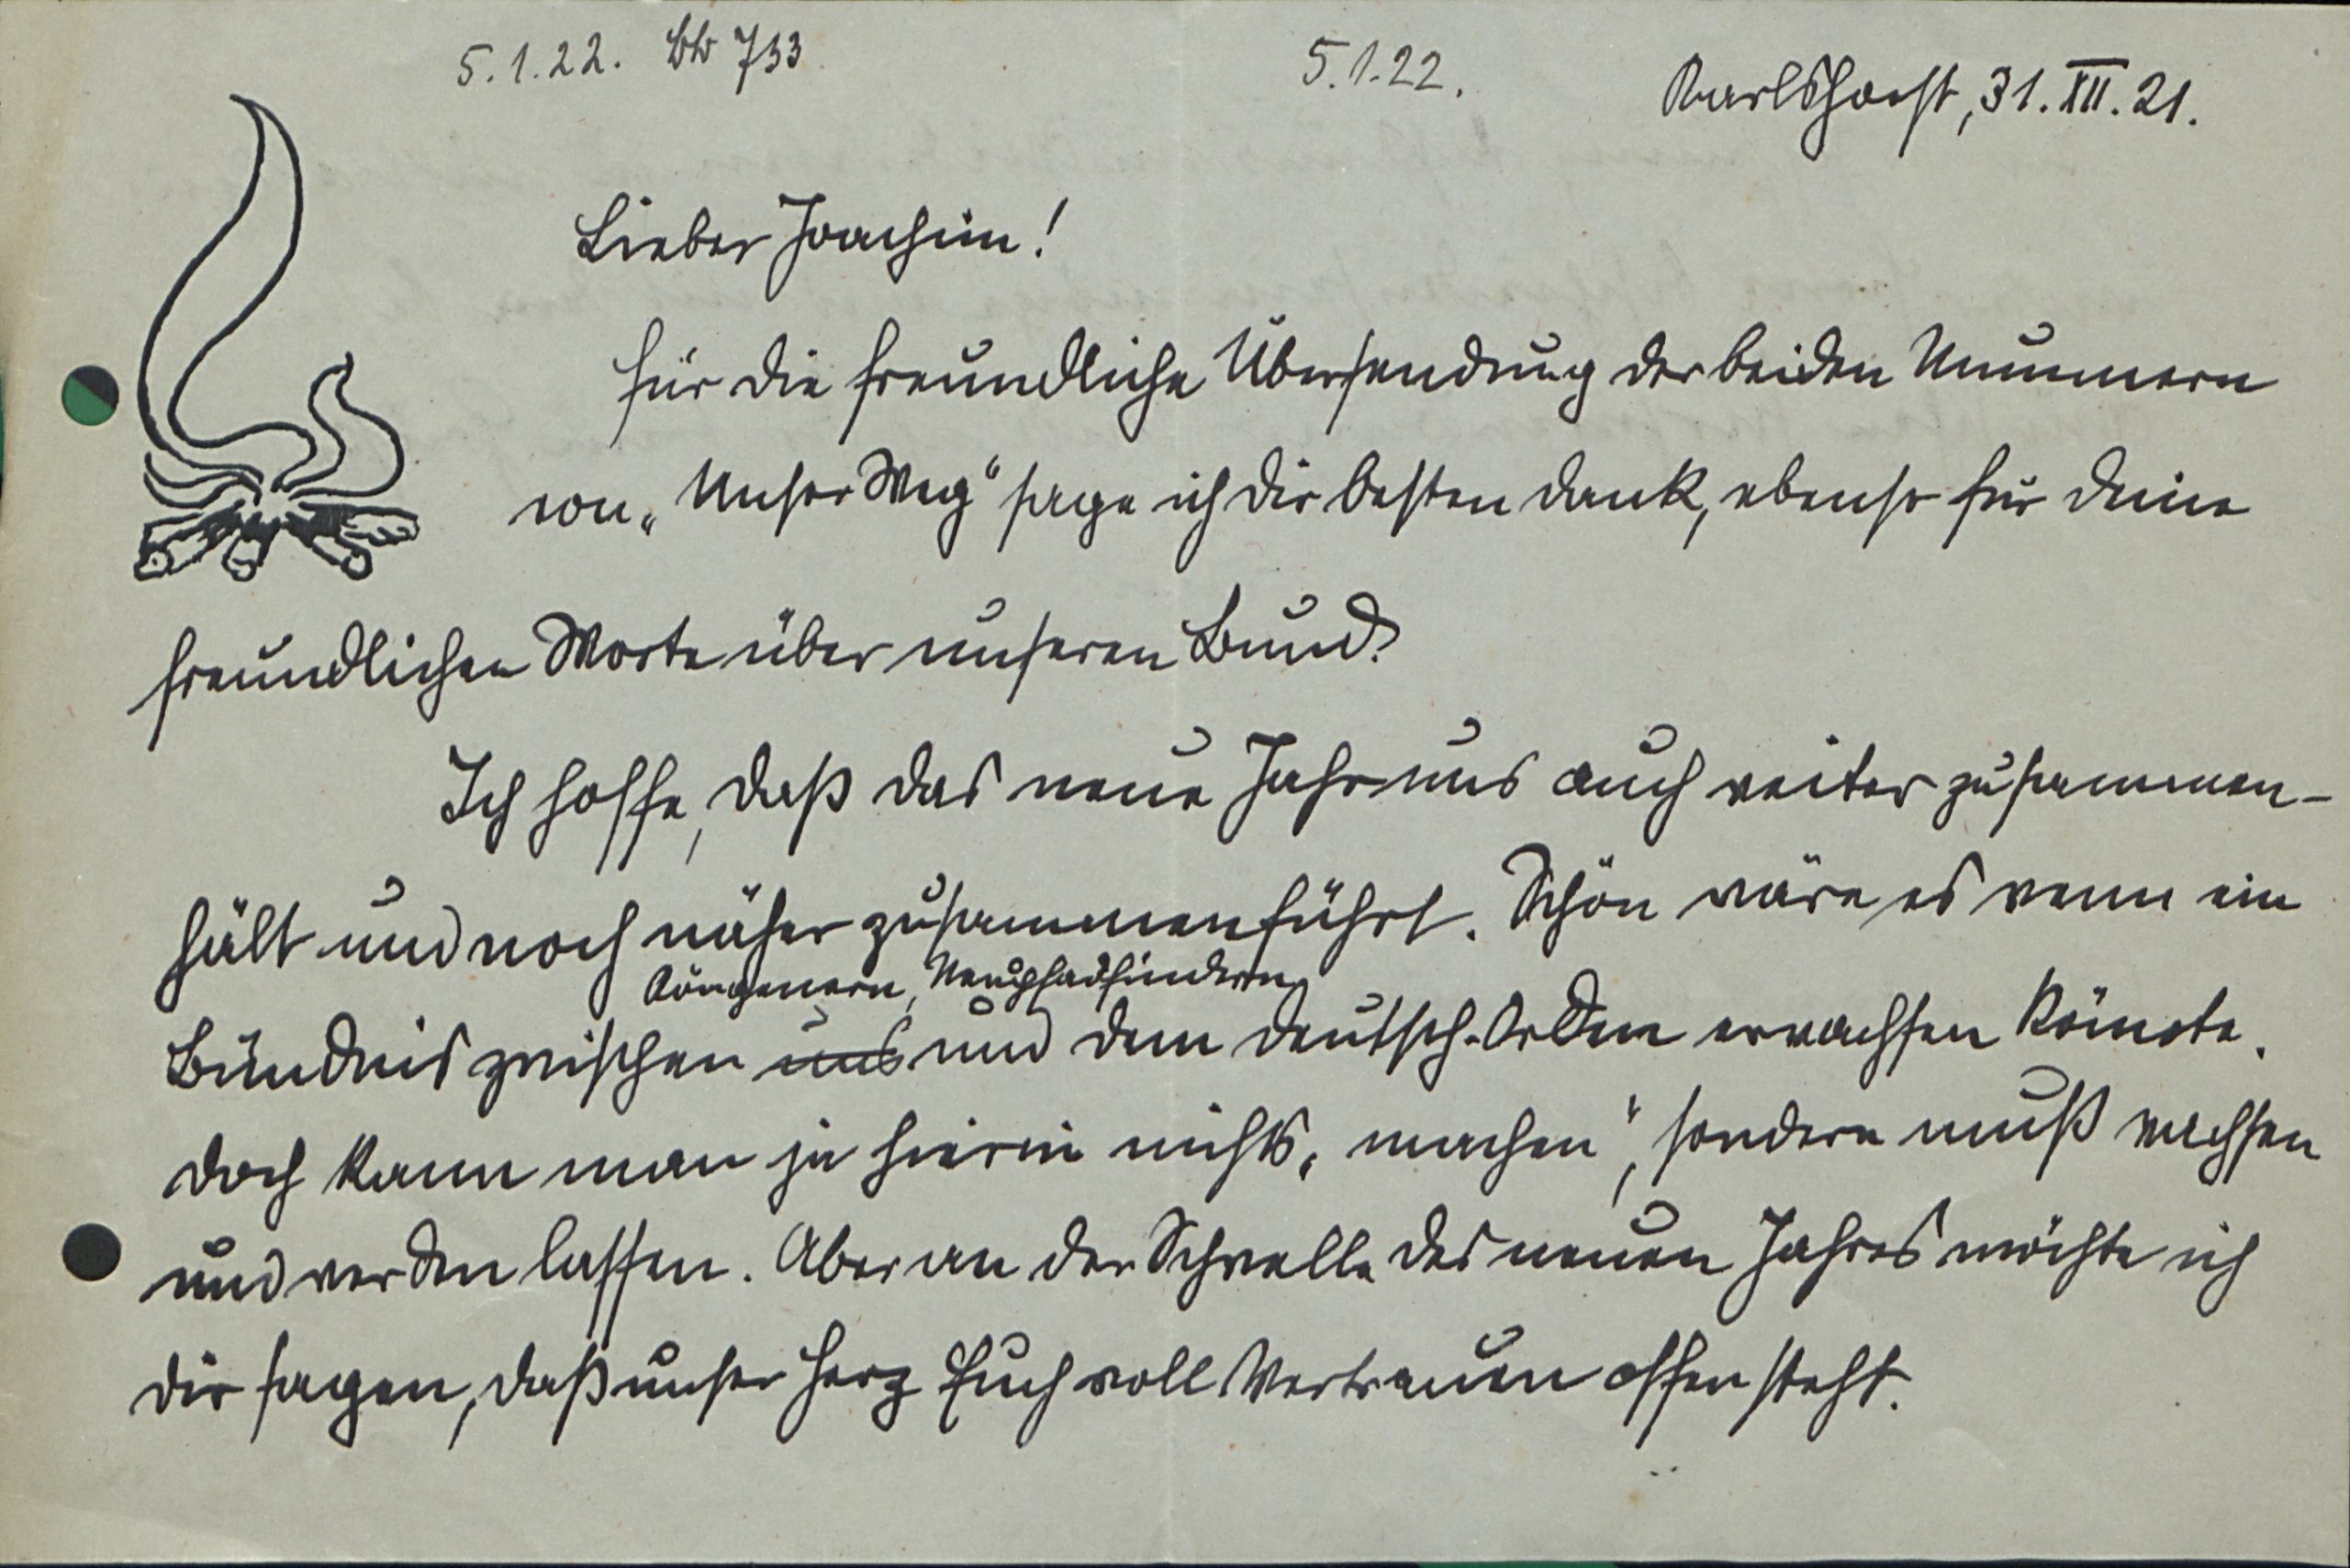 5.1.22. Bh 733
5.1.22.
Karlshorst, 31. XII. 21.
Lieber Joachim!
für die freundliche Übersendung der beiden Nummern
von „Unser Weg“ sage ich dir besten Dank, ebenso für deine
freundlichen Worte über unseren Bund.
Ich hoffe, daß das neue Jahr uns auch weiter zusammen-
hält und noch näher zusammenführt. Schön wäre es wenn ein
Köngenern, Neupfadfindern
Bündnis zwischen uns und dem Deutsch-Orden erwachsen könnte.
Doch kann man ja hierin nichts „machen“, sondern muß wachsen
und werden lassen. Aber an der Schwelle des neuen Jahres möchte ich
dir sagen, daß unser Herz Euch voll Vertrauen offen steht.